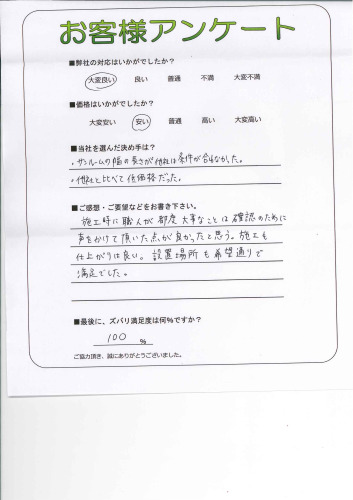 お客様アンケート
■弊社の対応はいかがでしたか？
大変良い 良い 普通 不満 大変不満
■価格はいかがでしたか？
大変安い 安い 普通 高い 大変高い
■当社を選んだ決め手は？
・サンルームの幅の長さが他社は条件が合わなかった。
・他社と比べて低価格だった。
■ご感想・ご要望などをお書き下さい。
施工時に職人が都度大事なことは確認のために
声をかけて頂いた点が良かったと思う。施工も
仕上がりは良い。設置場所も希望通りで
満足でした。
■最後に、ズバリ満足度は何%ですか？
100 %
ご協力頂き、誠にありがとうございました。